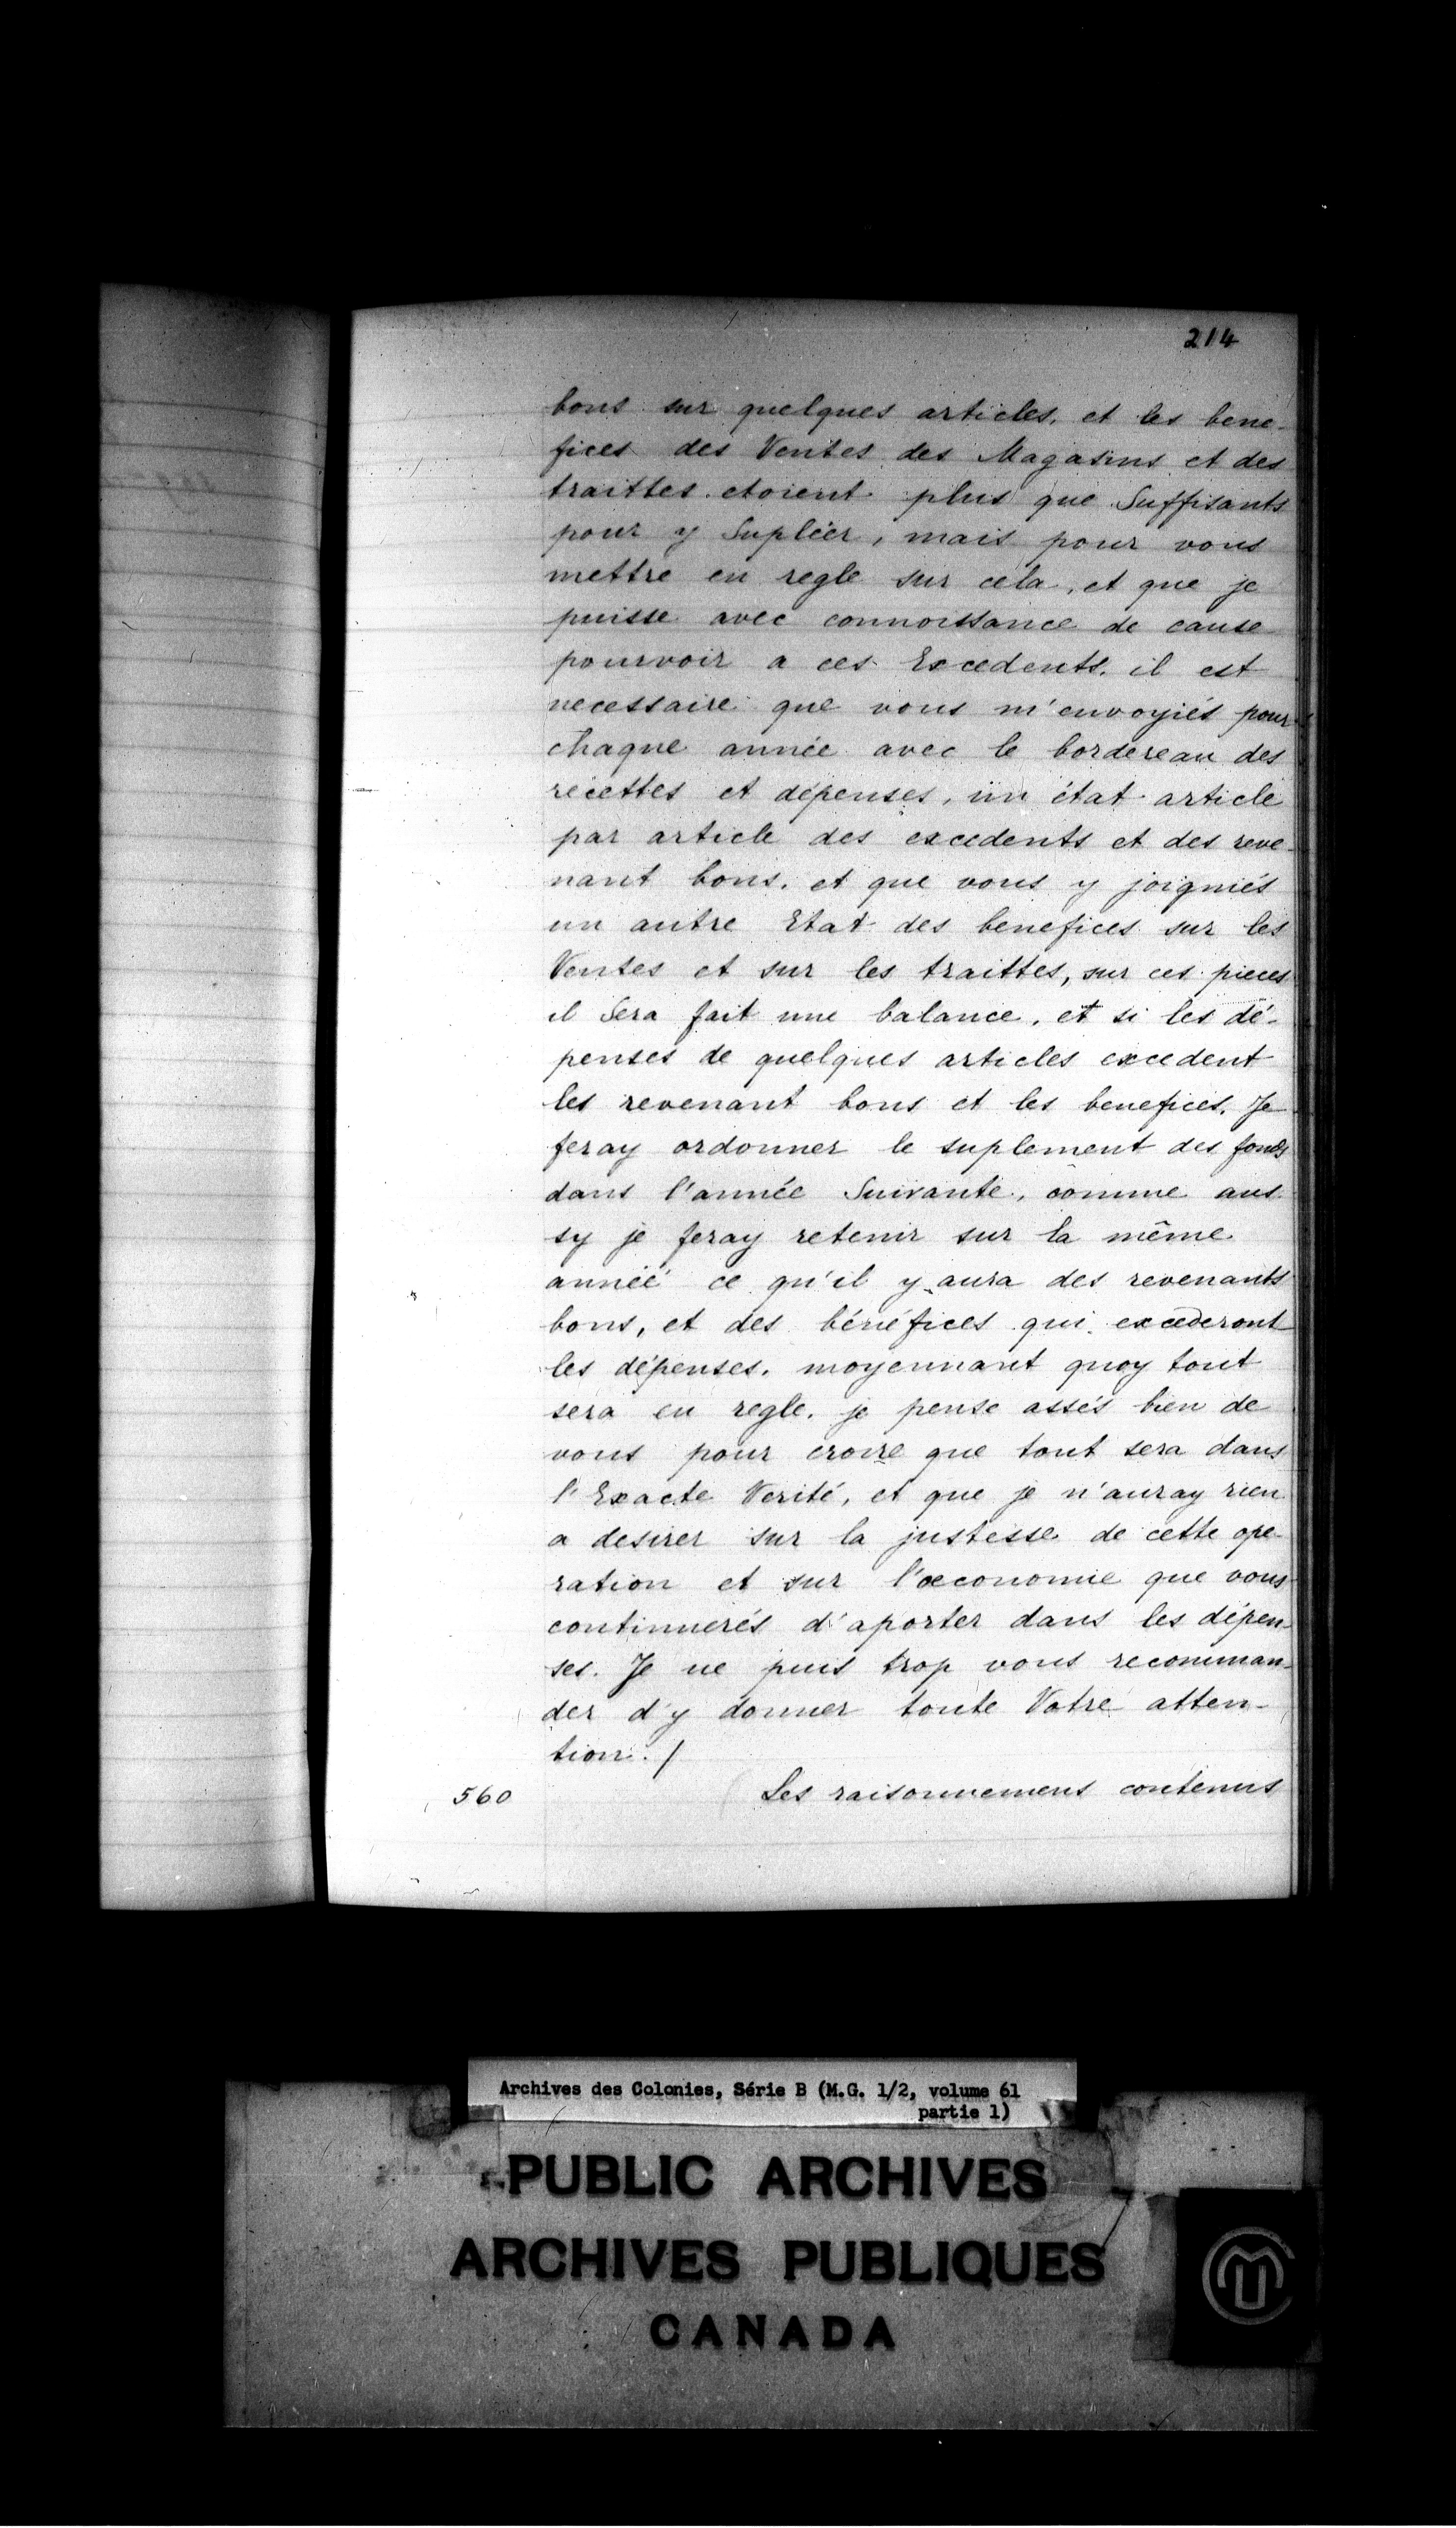 214
bons sur quelques articles, et les bene-
fices des Ventes des Magasins et des
traittes etoient plus que Suffisants
pour y Supléer, mais pour vous
mettre en regle sur cela, et que je
puisse avec connoissance de cause
pourvoir a ces Excedents, il est
necessaire que vous m'envoyiés pour
chaque année avec le bordereau des
recettes et dépenses, un état article
par article des excedents et des reve-
nant bons, et que vous y joigniés
un autre Etat des benefices sur les
Ventes et sur les traittes, sur ces pieces
il Sera fait une balance, et si les dé-
penses de quelques articles excedent
les revenant bons et les benefices, Je
feray ordonner le suplement des fonds
dans l'année Suivante, comme aus
sy je feray retenir sur la même
année ce qu'il y aura des revenants
bons, et des bénéfices qui excederont
les dépenses, moyennant quoy tout
sera en regle, je pense assés bien de
vous pour croire que tout sera dans
l'Exacte Verité, et que je n'auray rien
a desirer sur la justesse de cette ope-
ration et sur l'œconomie que vous
continuerés d'aporter dans les dépen-
ses. Je ne puis trop vous recomman-
der d'y donner toute Votre atten-
tion. /
560 Les raisonnemens contenus
Archives des Colonies, Série B (M.G. 1/2, volume 61
partie 1)
PUBLIC ARCHIVES
ARCHIVES PUBLIQUES
CANADA